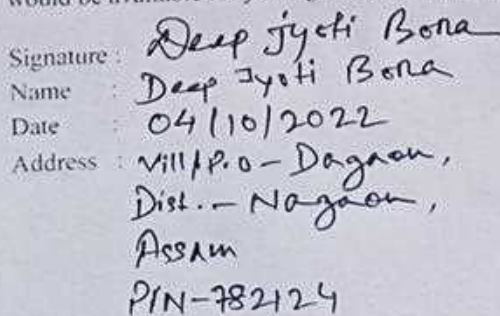 Signature : Deep Jyoti Bora
Name : Deep Jyoti Bora
Date : 04/10/2022
Address : Vill/P.O - Dagaon,
Dist. - Nagaon,
Assam
PIN-782124